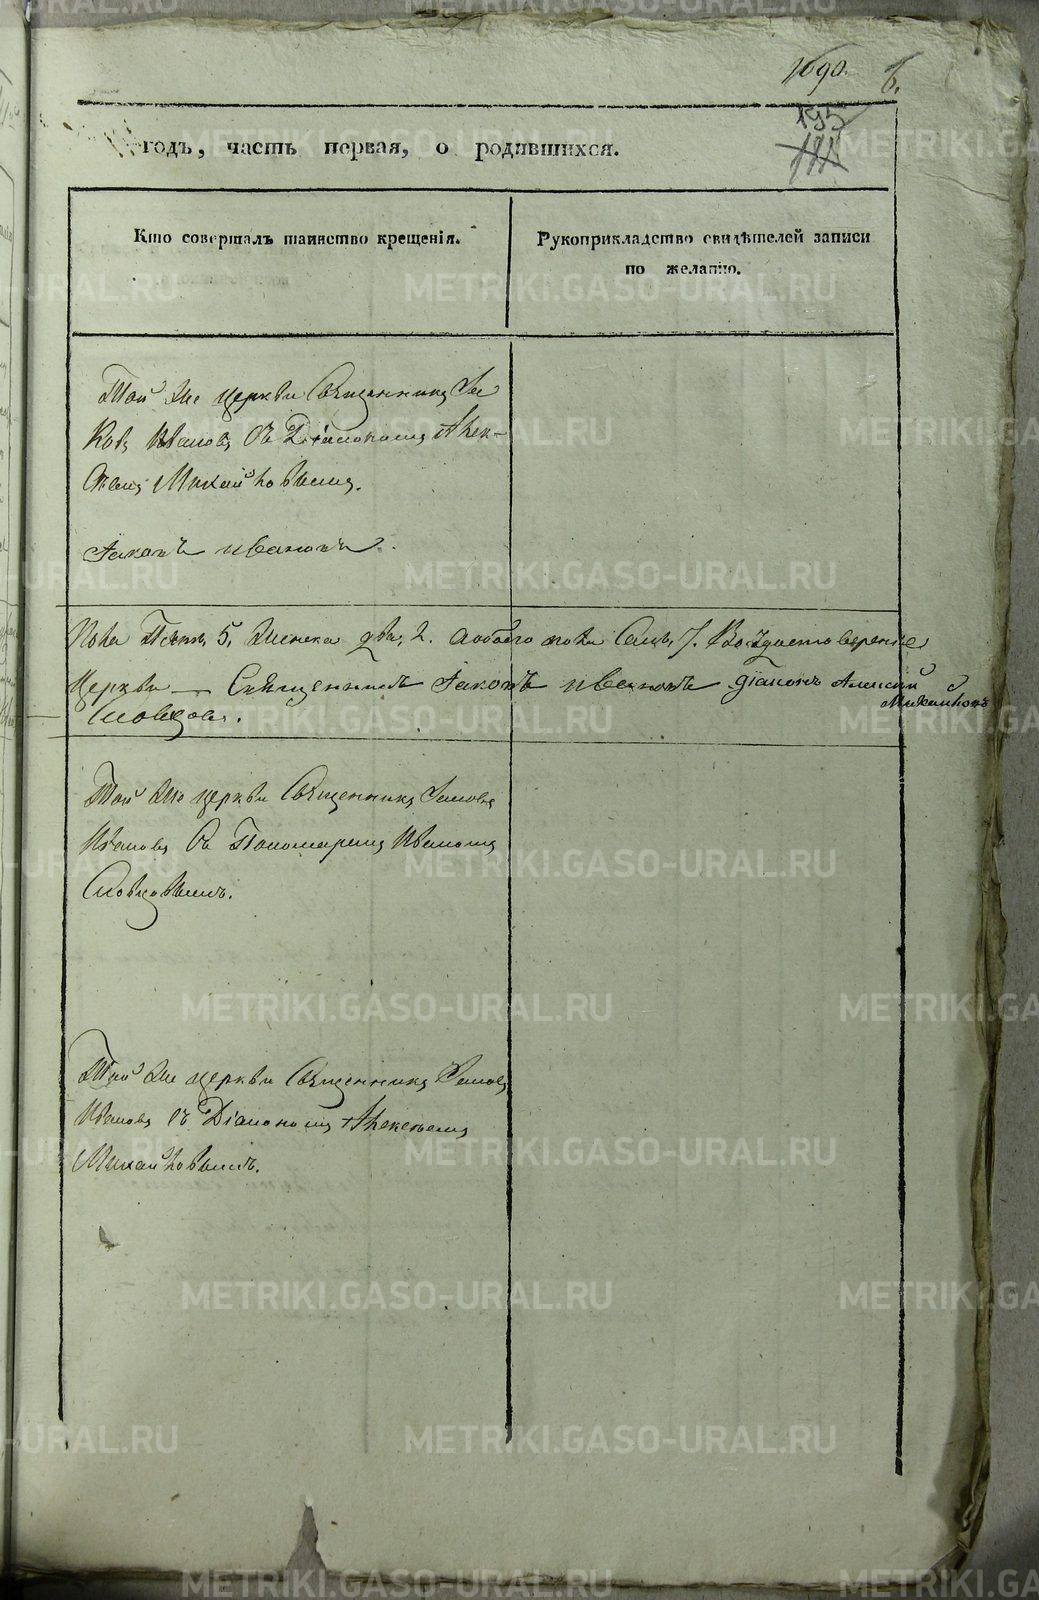 1690. 6.
195
годъ, часть первая, о родившихся.
Кто совершалъ таинство крещенія.
Рукоприкладство свидѣтелей записи
по желанію.
Той же церкви Священникъ Іа
ковъ Ивановъ съ Діакономъ Алек-
сѣемъ Михайловымъ.
Іаковъ Ивановъ.
пола 5, женска два, 2. обоего пола Семь, 7.
Церкви Священникъ Іаковъ Ивановъ Діаконъ Алексѣй
Михайловъ
Словцовъ.
Той же церкви Священникъ Іаковъ
Ивановъ съ Пономаремъ Иваномъ
Словцовымъ.
Той же церкви Священникъ Іаковъ
Ивановъ съ Діакономъ Алексѣемъ
Михайловымъ.
METRIKI.GASO-URAL.RU